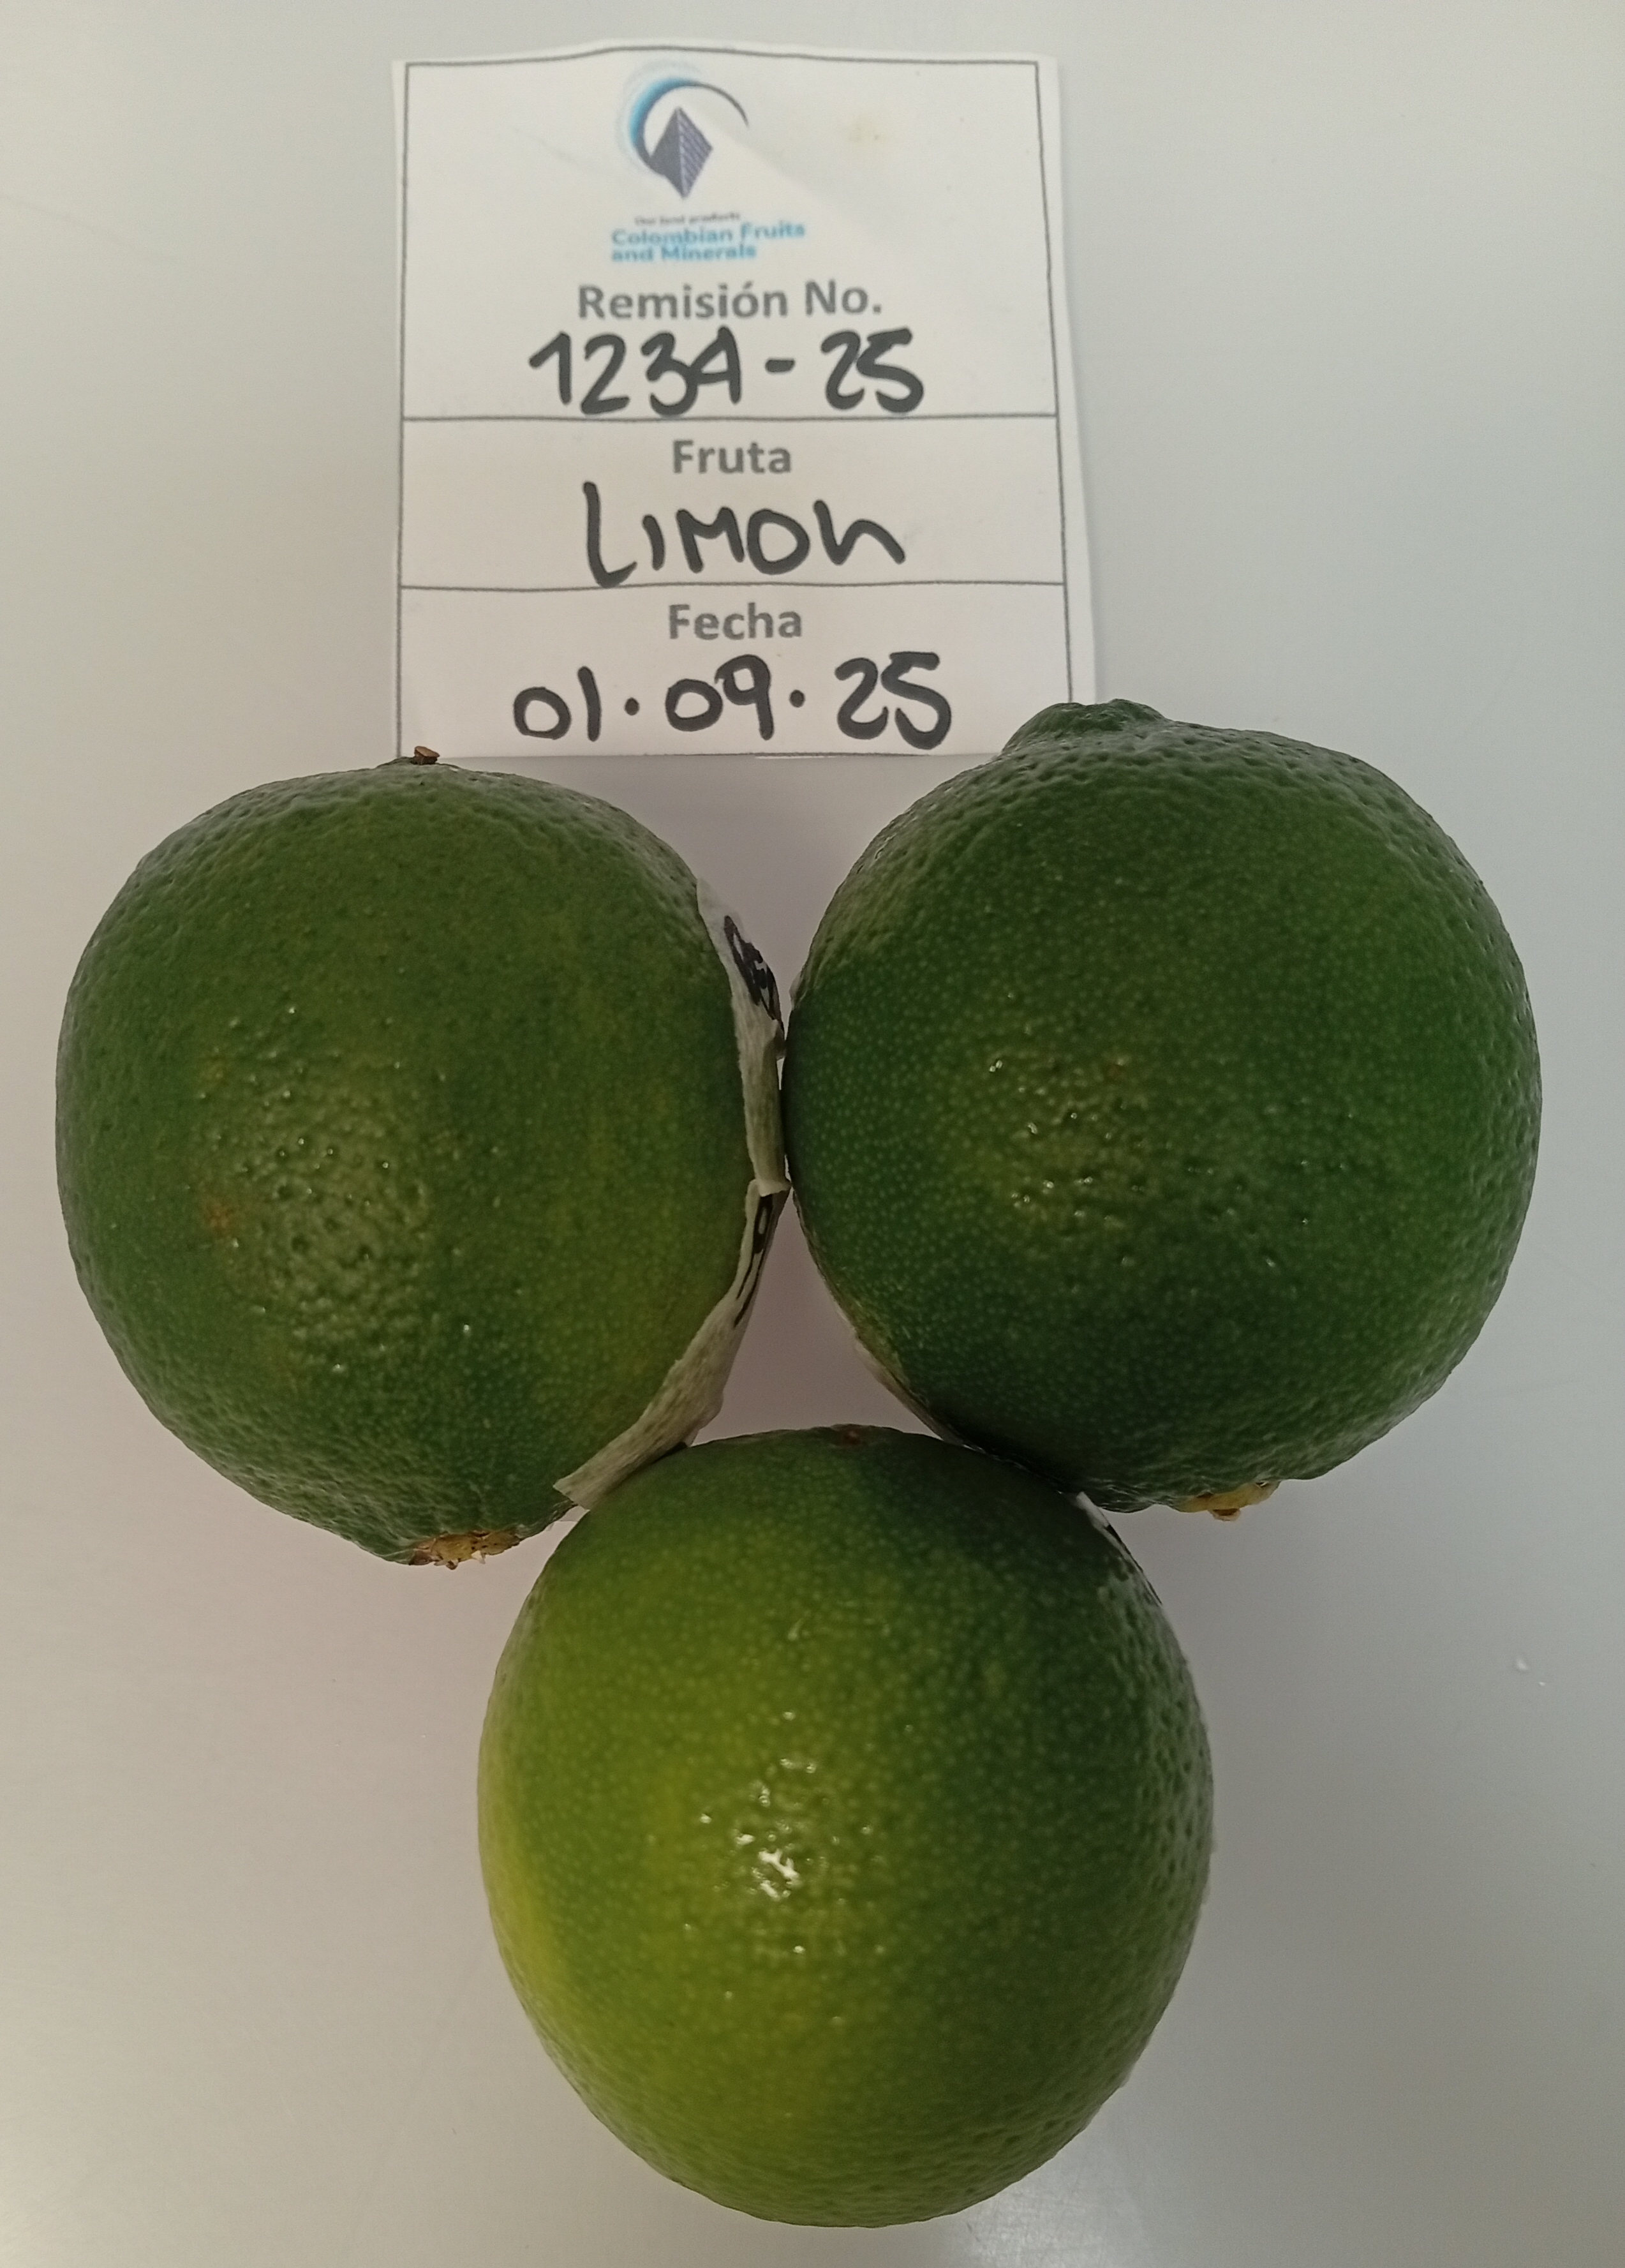 Our best products
Colombian Fruits
and Minerals
Remisión No.
1234-25
Fruta
LIMON
Fecha
01.09.25